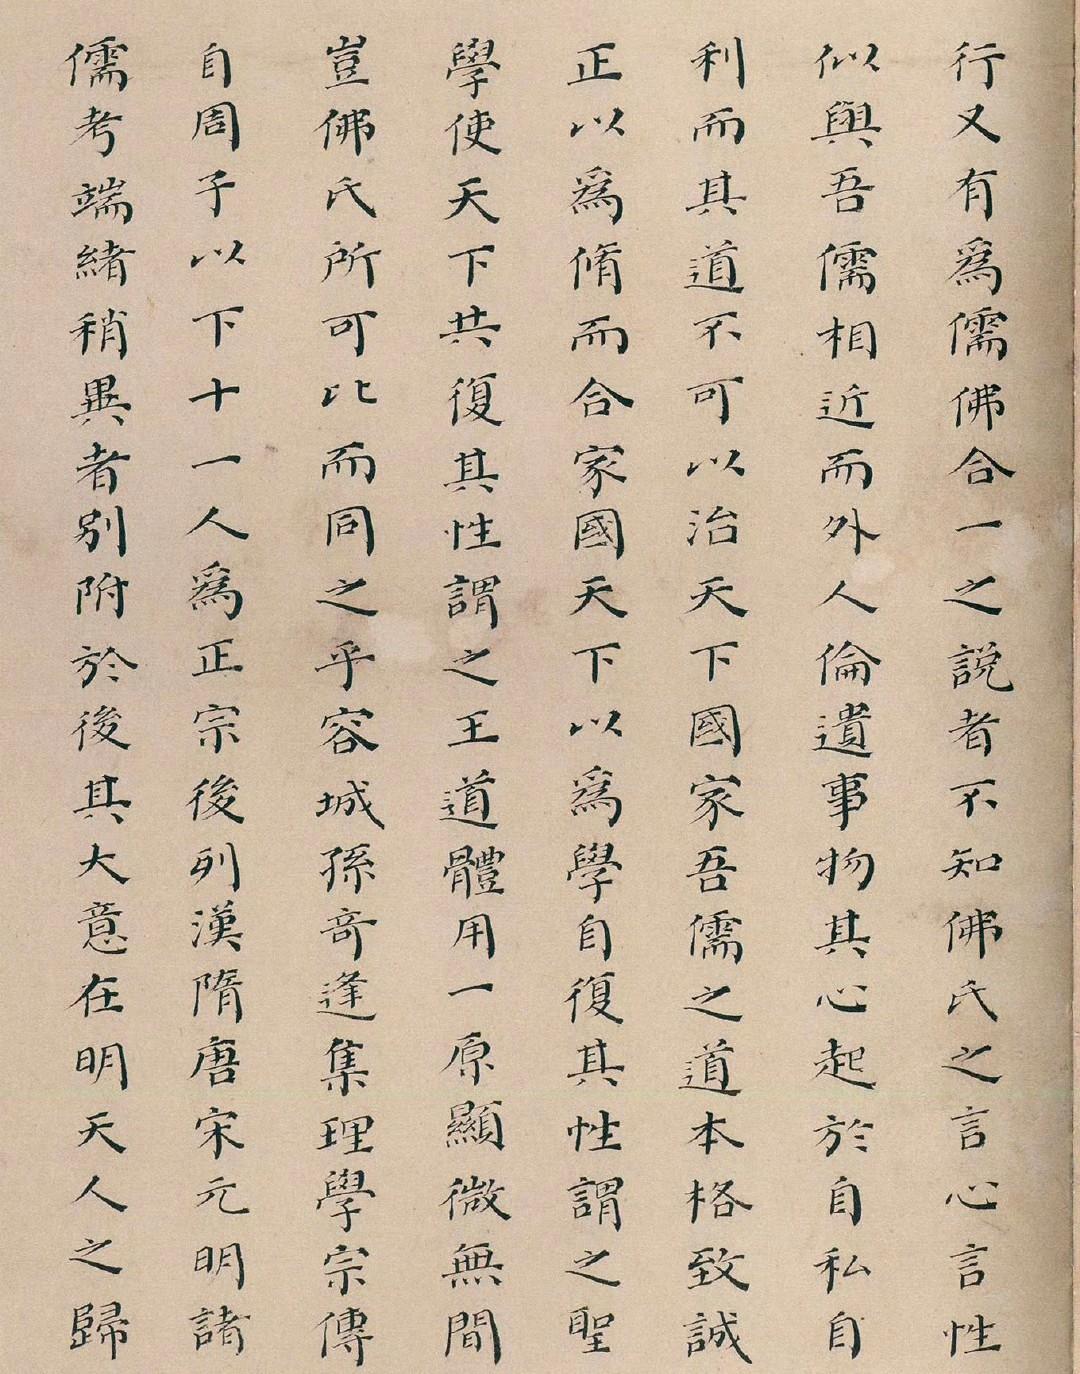 行又有爲儒佛合一之説者不知佛氏之言心言性
似與吾儒相近而外人倫遺事物其心起於自私自
利而其道不可以治天下國家吾儒之道本格致誠
正以爲脩而合家國天下以爲學自復其性謂之聖
學使天下共復其性謂之王道體用一原顯微無間
豈佛氏所可比而同之乎容城孫奇逢集理學宗傳
自周子以下十一人爲正宗後列漢隋唐宋元明諸
儒考端緒稍異者別附於後其大意在明天人之歸